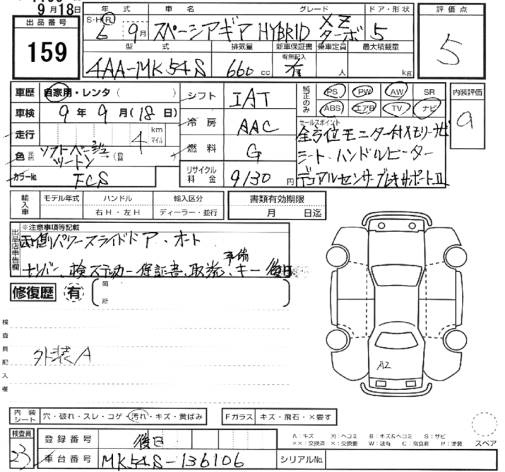 9月18日
出品番号
159
年式
車名
グレード
ドア・形状
評価点
S・H・R 6年 9月
スペーシアギア HYBRID XZ ターボ
5
5
型式
排気量
新車保証書
乗車定員
最大積載量
4AA-MK54S
660cc
有
kg
車歴 自家用・レンタ( )
シフト
IAT
純正のみ
PS PW AW SR
ABS エアB TV ナビ
内装評価
a
車検 9年 9月(18日)
冷房
AAC
セールスポイント
全方位モニター付メモリーナビ
走行
4
km
マイル
燃料
G
シートハンドルヒーター
色
ソフトベージュ
ツートン
リサイクル料金
9130円
デュアルセンサーブレーキサポートII
カラーNo
FCS
輸入車
モデル年式
ハンドル
右H・左H
輸入区分
ディーラー・並行
書類有効期限
月 日迄
出品店申告欄
※注意事項等記載
両側パワースライドドア・オート
ナンバー、検ステッカー、保証書、取説、予備キー後日
修復歴 有
箇所
検査員記入欄
外装A
A2
内装シート
穴・破れ・スレ・コゲ・汚れ・キズ・黄ばみ
Fガラス
キズ・飛石・×要す
検査員
23
登録番号
後日
スペア
車台番号
MK54S-136106
シリアルNo.